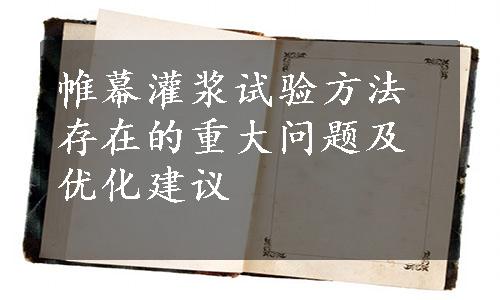 帷幕灌浆试验方法
存在的重大问题及
优化建议